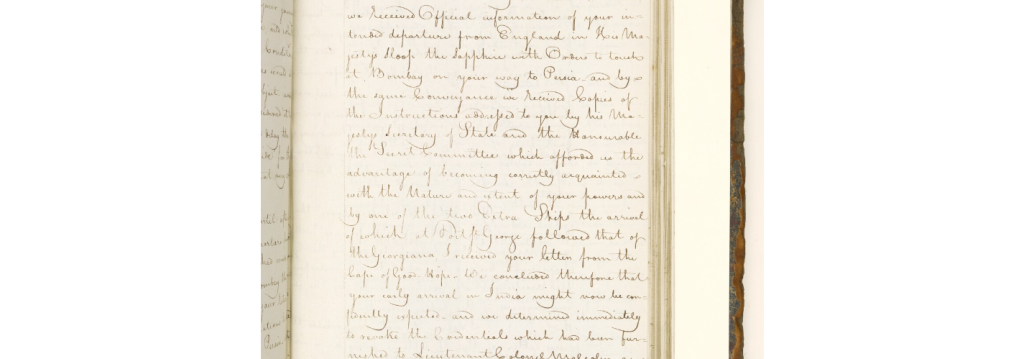 we received Official information of your in-
tended departure from England in His Ma-
jestys Sloop the Sapphire with Orders to touch
at Bombay on your way to Persia and by
the same Conveyance we received Copies of
the Instructions addressed to you by his Ma-
jestys Secretary of State and the Honourable
the Secret Committee which afforded us the
advantage of becoming correctly acquainted
with the Nature and extent of your powers and
by one of the two Extra Ships the arrival
of which at Fort St George followed that of
the Georgiana I received your letter from the
Cape of Good Hope. We concluded therefore that
your early arrival in India might now be con-
fidently expected and we determined immediately
to revoke the Credentials which had been fur-
nished to Lieutenant Colonel Malcolm